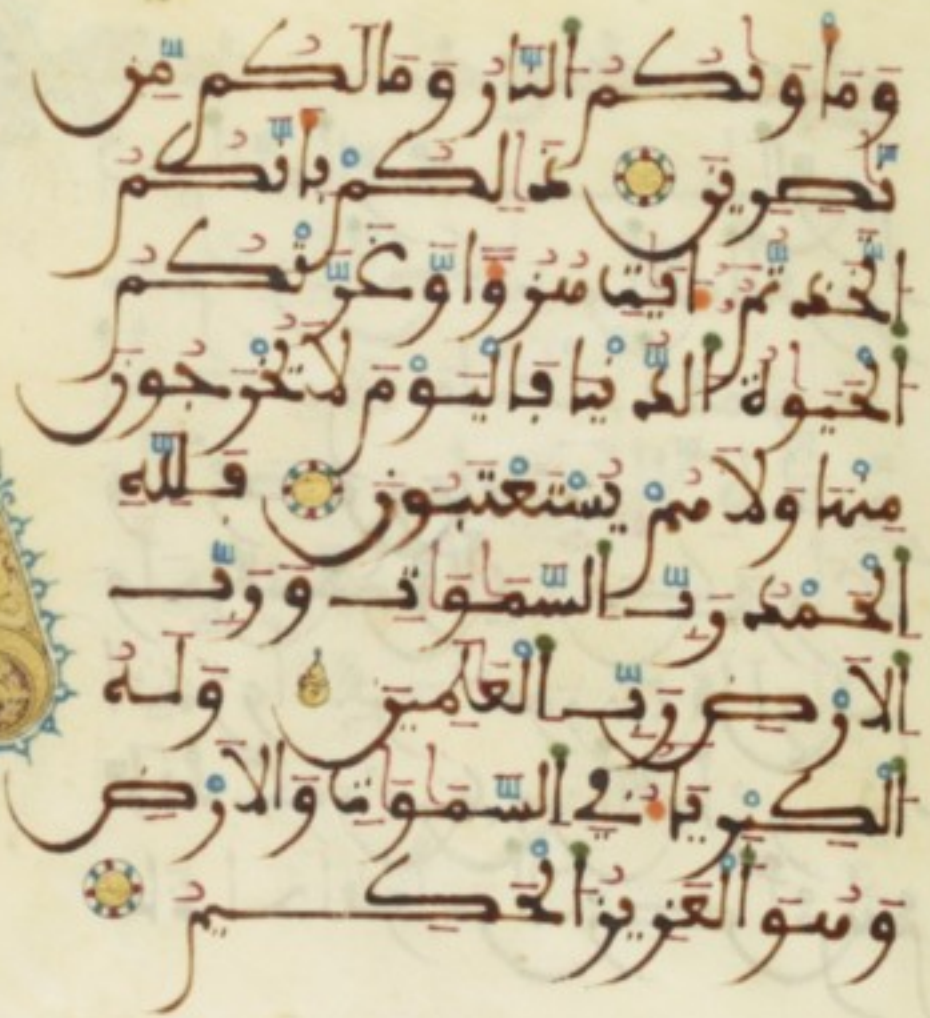 وماويكم النار وما لكم من
نصرين ذالكم بانكم
اتخذتم ايت هزوا وغرتكم
الحيوة الدنيا فاليوم لا يخرجون
منها ولا هم يستعتبون فلله
الحمد رب السموات ورب
الارض رب العلمين وله
الكبرياء في السموات والارض
وهو العزيز الحكيم